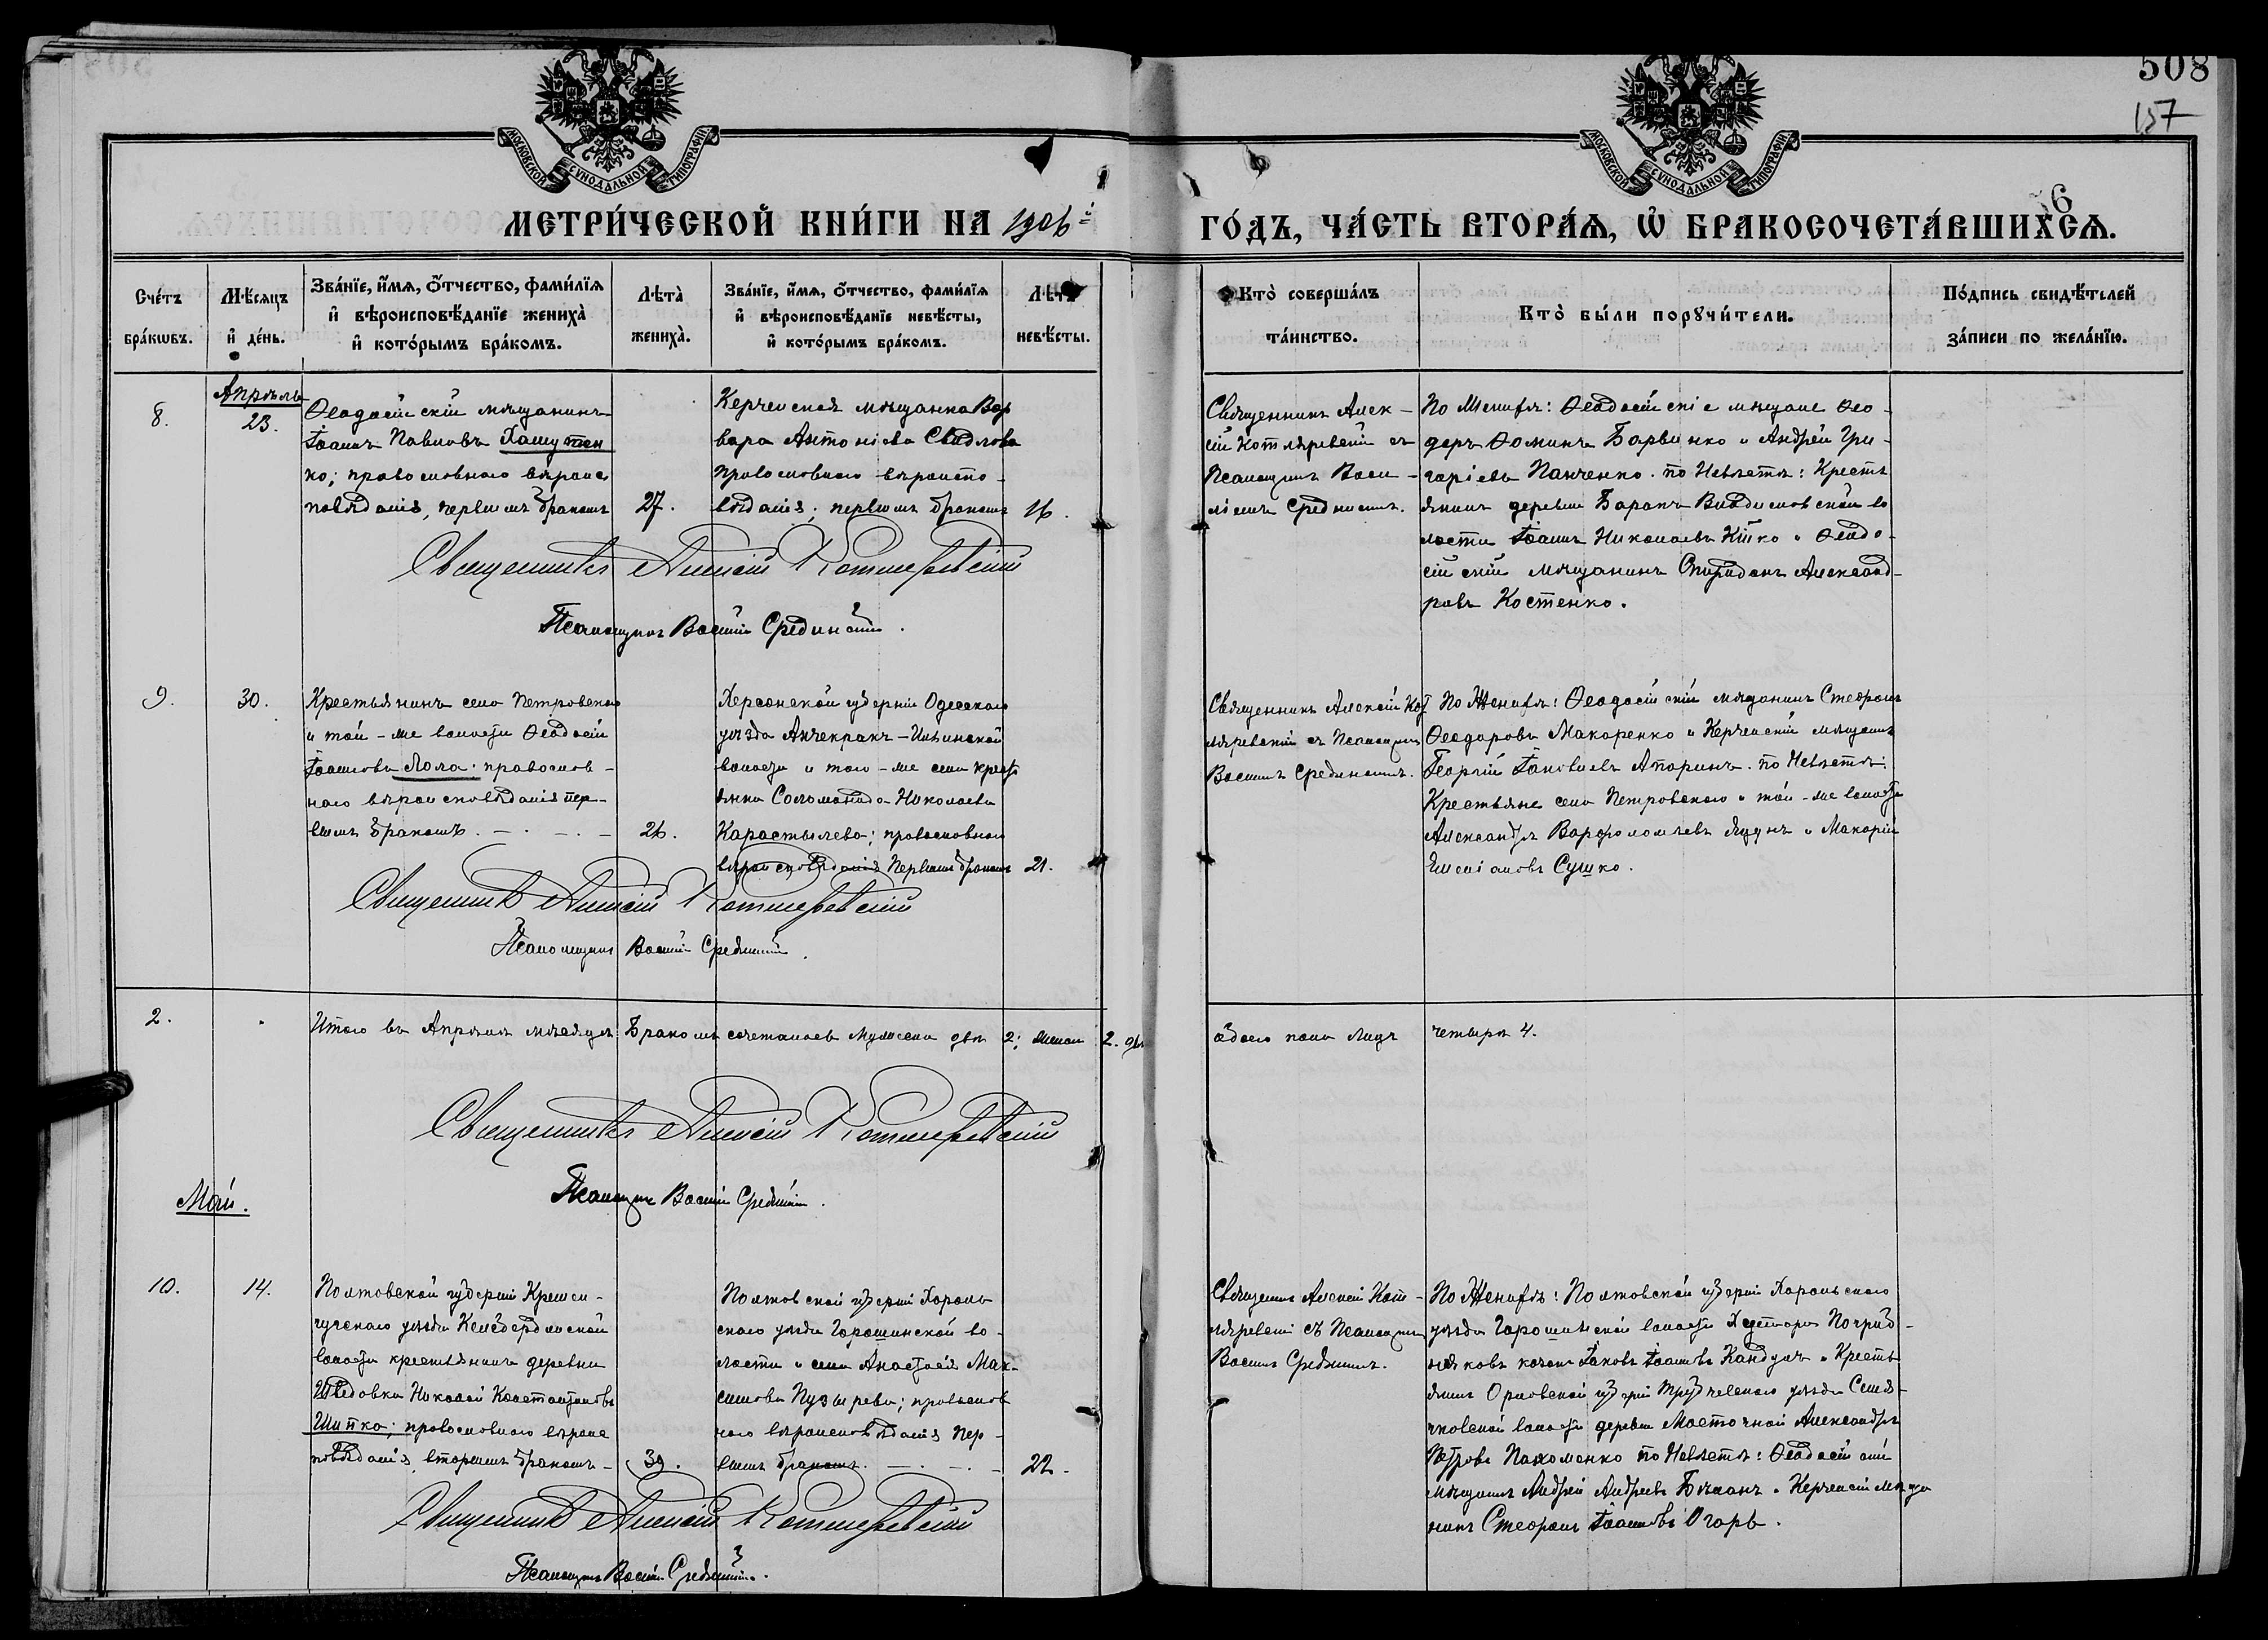 508
157
6
МОСКОВСКОЙ СѴНОДАЛЬНОЙ ТИПОГРАФІИ
МОСКОВСКОЙ СѴНОДАЛЬНОЙ ТИПОГРАФІИ
МЕТРИ́ЧЕСКОЙ КНИ́ГИ НА 1906й
ГО́ДЪ, ЧА́СТЬ ВТОРА́Ѧ, Ѽ БРАКОСОЧЕТА́ВШИХСѦ.
Сче́тъ бра́кѡвъ.
Мѣ́сѧцъ и҆ де́нь.
Зва́нїе, и҆́мѧ, ѻ҆́тчество, фами́лїѧ
и҆ вѣроисповѣ́данїе жениха̀
и҆ кото́рымъ бра́комъ.
Лѣта̀ жениха̀.
Зва́нїе, и҆́мѧ, ѻ҆́тчество, фами́лїѧ
и҆ вѣроисповѣ́данїе невѣ́сты,
и҆ кото́рымъ бра́комъ.
Лѣта̀ невѣ́сты.
Кто̀ соверша́лъ
та́инство.
Кто̀ бы́ли порꙋчи́тели.
По́дпись свидѣ́телей
за́писи по жела́нїю.
8.
Апрѣль
23.
Ѳеодосійскій мѣщанинъ
Іоаннъ Павловъ Хашутен
ко; православнаго вѣроис
повѣданія, первымъ бракомъ
27.
Керченская мѣщанка Вар
вара Антоніева
православнаго вѣроиспо-
вѣданія; первымъ бракомъ
16.
Священникъ Алек-
сій Котляревскій съ
Псаломщик Васи-
ліемъ Срединскимъ.
По Женихѣ: Ѳеодосійскіе мѣщане Ѳео-
доръ Ѳоминъ Барвинко и Андрей Гри-
горіевъ Панченко. по Невѣстѣ: Кресть
янинъ деревни Баракъ Владиславской во
лости Іоаннъ Николаевъ Кітко и Ѳеодо-
сійскій мѣщанинъ Спиридонъ Александ-
ровъ Костенко.
Священникъ Алексій Котляревскій
Псаломщикъ Василій Срединскій.
9.
30.
Крестьянинъ села Петровскаго
и той-же волости Ѳеодосій
Іоанновъ Лола: православ-
наго вѣроисповѣданія пер-
вымъ бракомъ. — . — . —
26.
Херсонской губерніи Одесскаго
уѣзда Анчекракъ-Ильинской
волости и того-же села кресть
янка Соломонида Николаева
Карастылева; православнаго
вѣроисповѣданія первымъ бракомъ
21.
Священникъ Алексій Кот
ляревскій съ Псаломщик
Василіемъ Срединскимъ.
По Женихѣ: Ѳеодосійскій мѣщанинъ Стефанъ
Ѳеодоровъ Макаренко и Керченскій мѣщанинъ
Георгій Іаковлевъ Апаринъ. по Невѣстѣ:
Крестьяне села Петровскаго и той-же волости
Александръ Варфоломѣевъ Яцунъ и Макарій
Емеліановъ Сушко.
Священникъ Алексій Котляревскій
Псаломщикъ Василій Срединскій.
2.
Итого въ Апрѣлѣ мѣсяцѣ Бракомъ сочеталось мужеска два 2; женска 2. два
обоего пола лицъ четыре 4.
Священникъ Алексій Котляревскій
Псаломщикъ Василій Срединскій.
Май.
10.
14.
Полтовской губерніи Кремен-
чугскаго уѣзда Келебердянской
волости крестьянинъ деревни
Шведовки Николай Константиновъ
Шипко; православнаго вѣроис
повѣданія, вторымъ бракомъ —
39.
Полтовской губерніи Хороль
скаго уѣзда Горошинской во-
лости и села Анастасія Мак-
симова Пузырева; православ
наго вѣроисповѣданія пер-
вымъ бракомъ. — . — . —
22.
Священникъ Алексій Кот-
ляревскій съ Псаломщик
Василіемъ Срединскимъ.
По Женихѣ: Полтовской губерніи Хорольскаго
уѣзда Горошинской волости Хутора
казакъ Іаковъ Іоанновъ и Кресть
янинъ Орловской губерніи Трубчевскаго уѣзда Семя-
чковской волости деревни Александръ
Петровъ Пахоменко по Невѣстѣ: Ѳеодосійскій
мѣщанинъ Андрей Андреевъ и Керченскій мѣща
нинъ Стефанъ Іоанновъ Огарь.
Священникъ Алексій Котляревскій
Псаломщикъ Василій Срединскій.